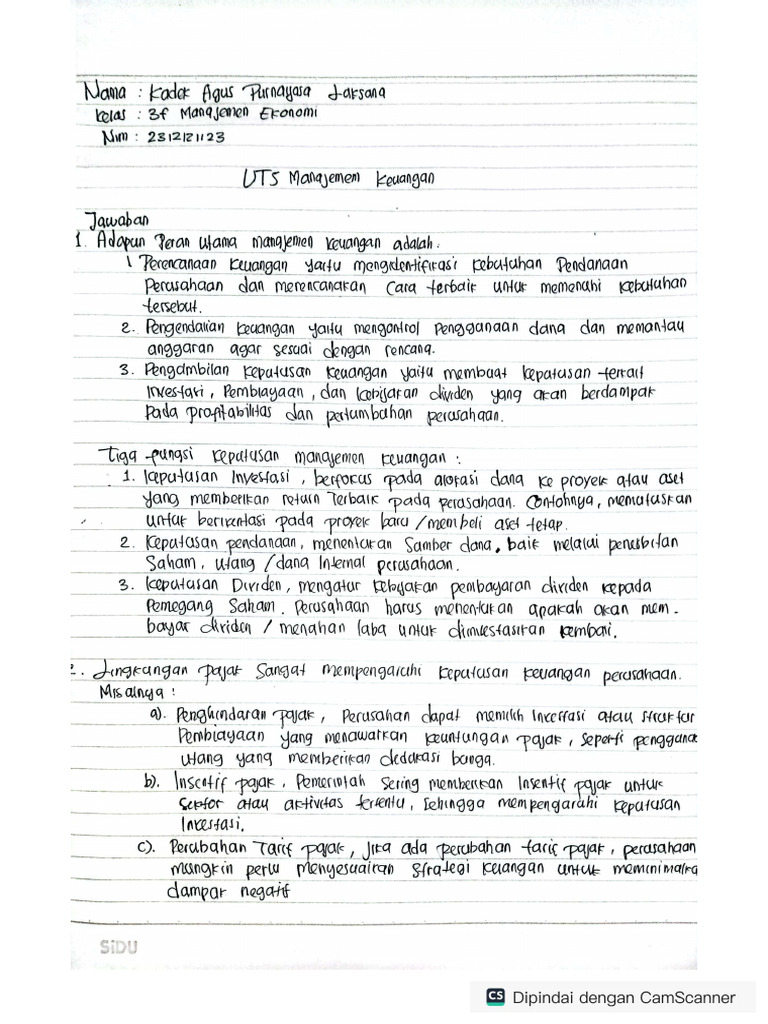 Nama : Kadek Agus Purnayasa Laksana
Kelas : 3f Manajemen Ekonomi
Nim : 2312121123
UTS Manajemem Keuangan
Jawaban
1. Adapun Peran utama manajemen keuangan adalah.
1 Perencanaan Keuangan yaitu mengidentifikasi kebutuhan Pendanaan
Perusahaan dan merencanakan Cara terbaik untuk memenuhi kebutuhan
tersebut.
2. Pengendalian keuangan yaitu mengontrol Penggunaan dana dan memantau
anggaran agar sesuai dengan rencana.
3. Pengambilan keputusan keuangan yaitu membuat keputusan terkait
Investasi, Pembiayaan, dan kebijakan dividen yang akan berdampak
Pada profitabilitas dan pertumbuhan perusahaan.
Tiga fungsi keputusan manajemen keuangan :
1. keputusan Investasi, berfokus pada alokasi dana ke proyek atau aset
yang memberikan return Terbaik pada perusahaan. Contohnya, memutuskan
untuk berinventasi pada proyek baru / membeli aset tetap.
2. Keputusan pendanaan, menentukan Sumber dana, baik melalui penerbitan
Saham, utang / dana Internal perusahaan.
3. Keputusan Dividen, mengatur kebijakan pembayaran dividen kepada
Pemegang Saham. Perusahaan harus menentukan apakah akan mem-
bayar dividen / menahan laba untuk diinvestasikan kembali.
2. Lingkungan pajak Sangat mempengaruhi keputusan keuangan perusahaan.
Misalnya :
a). Penghindaran pajak, Perusahan dapat memilih Investasi atau struktur
Pembiayaan yang menawarkan keuntungan pajak, seperti pengguna
utang yang memberikan deduksi bunga.
b). Insentif pajak, Pemerintah Sering memberikan Insentif pajak untuk
sektor atau aktivitas tertentu, Sehingga mempengaruhi keputusan
Investasi.
c). Perubahan Tarif pajak, Jika ada perubahan tarif pajak, perusahaan
mungkin perlu menyesuaikan Strategi keuangan untuk meminimalka
dampak negatif
SiDU
CS Dipindai dengan CamScanner